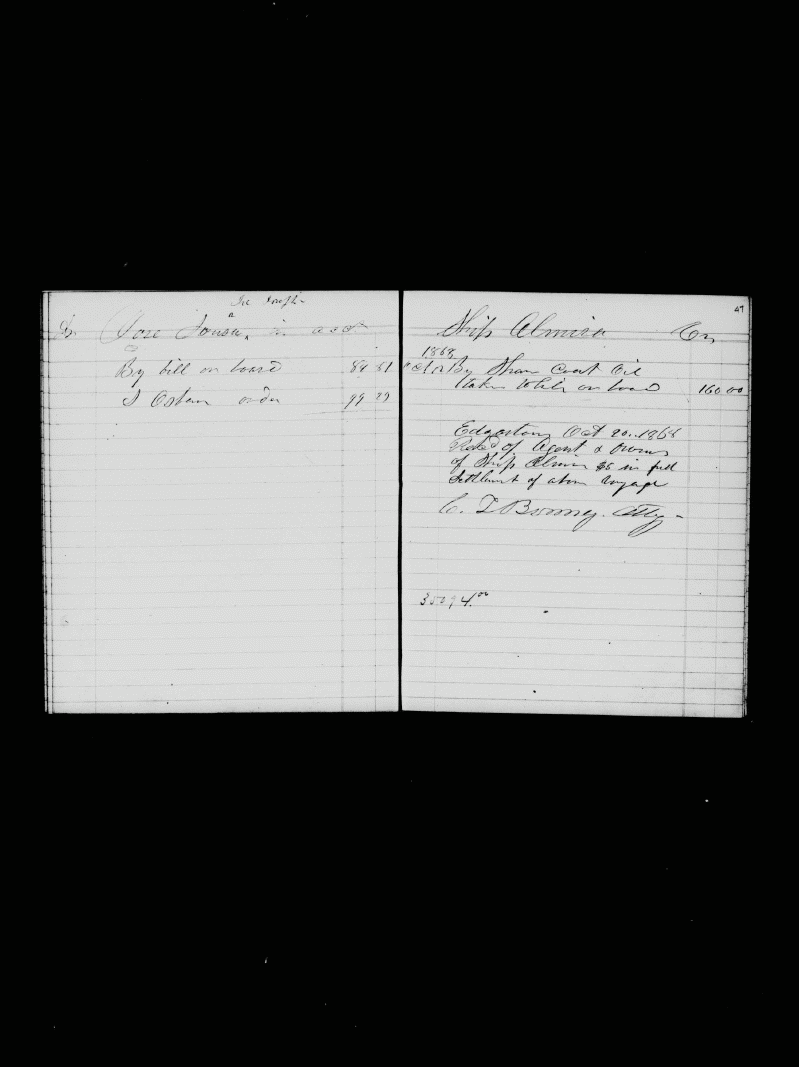 Joe Joseph
Dr Jose Sousa, in acct
By bill on board 84 81
S Osborn order 99 29
47
Ship Almira Cr
1868
Oct By Share Coast Oil
Taken while on board 160 00
Edgartown Oct 20. 1868
Recd of Agent & owners
of Ship Almira $8 in full
Settlement of above Voyage
C. Atty